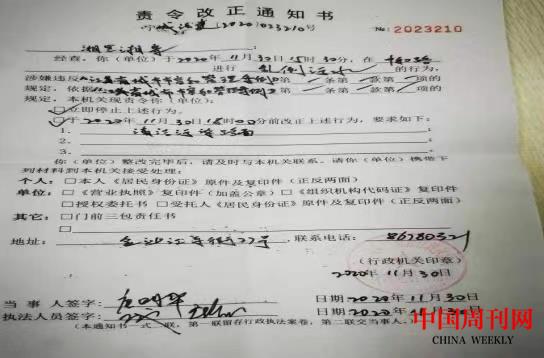 责令改正通知书
(2020)023210号
No:2023210
湘里湘粤
经查,你(单位)于2020年11月30日15时30分,在
进行 乱倒污水 的行为,
涉嫌违反《江苏省城市市容和环境管理条例》第 条第 款第 项的
规定。依据《江苏省城市市容和环境管理条例》第 条第 款第 项的
规定,本机关现责令你(单位):
立即停止上述行为。
于2020年11月30日16时00分前改正上述行为,要求如下:
1.
2.
3.
你(单位)整改完毕后,请及时与本机关联系。请你(单位)携带下
列材料到本机关接受处理:
个人:□本人《居民身份证》原件及复印件(正反两面)
单位:□《营业执照》复印件(加盖公章) □《组织机构代码证》复印件
□授权委托书 □受托人《居民身份证》原件及复印件(正反两面)
其它:□门前三包责任书
□
地址: 金沙江 77号 联系电话: 86780321
(行政机关印章)
2020年11月30日
当事人签字: 日期2020年11月30日
执法人员签字: 日期 年 月30日
(本通知书一式 联,第一联留存行政执法案卷,第二联交当事人,
中国周刊网
CHINA WEEKLY